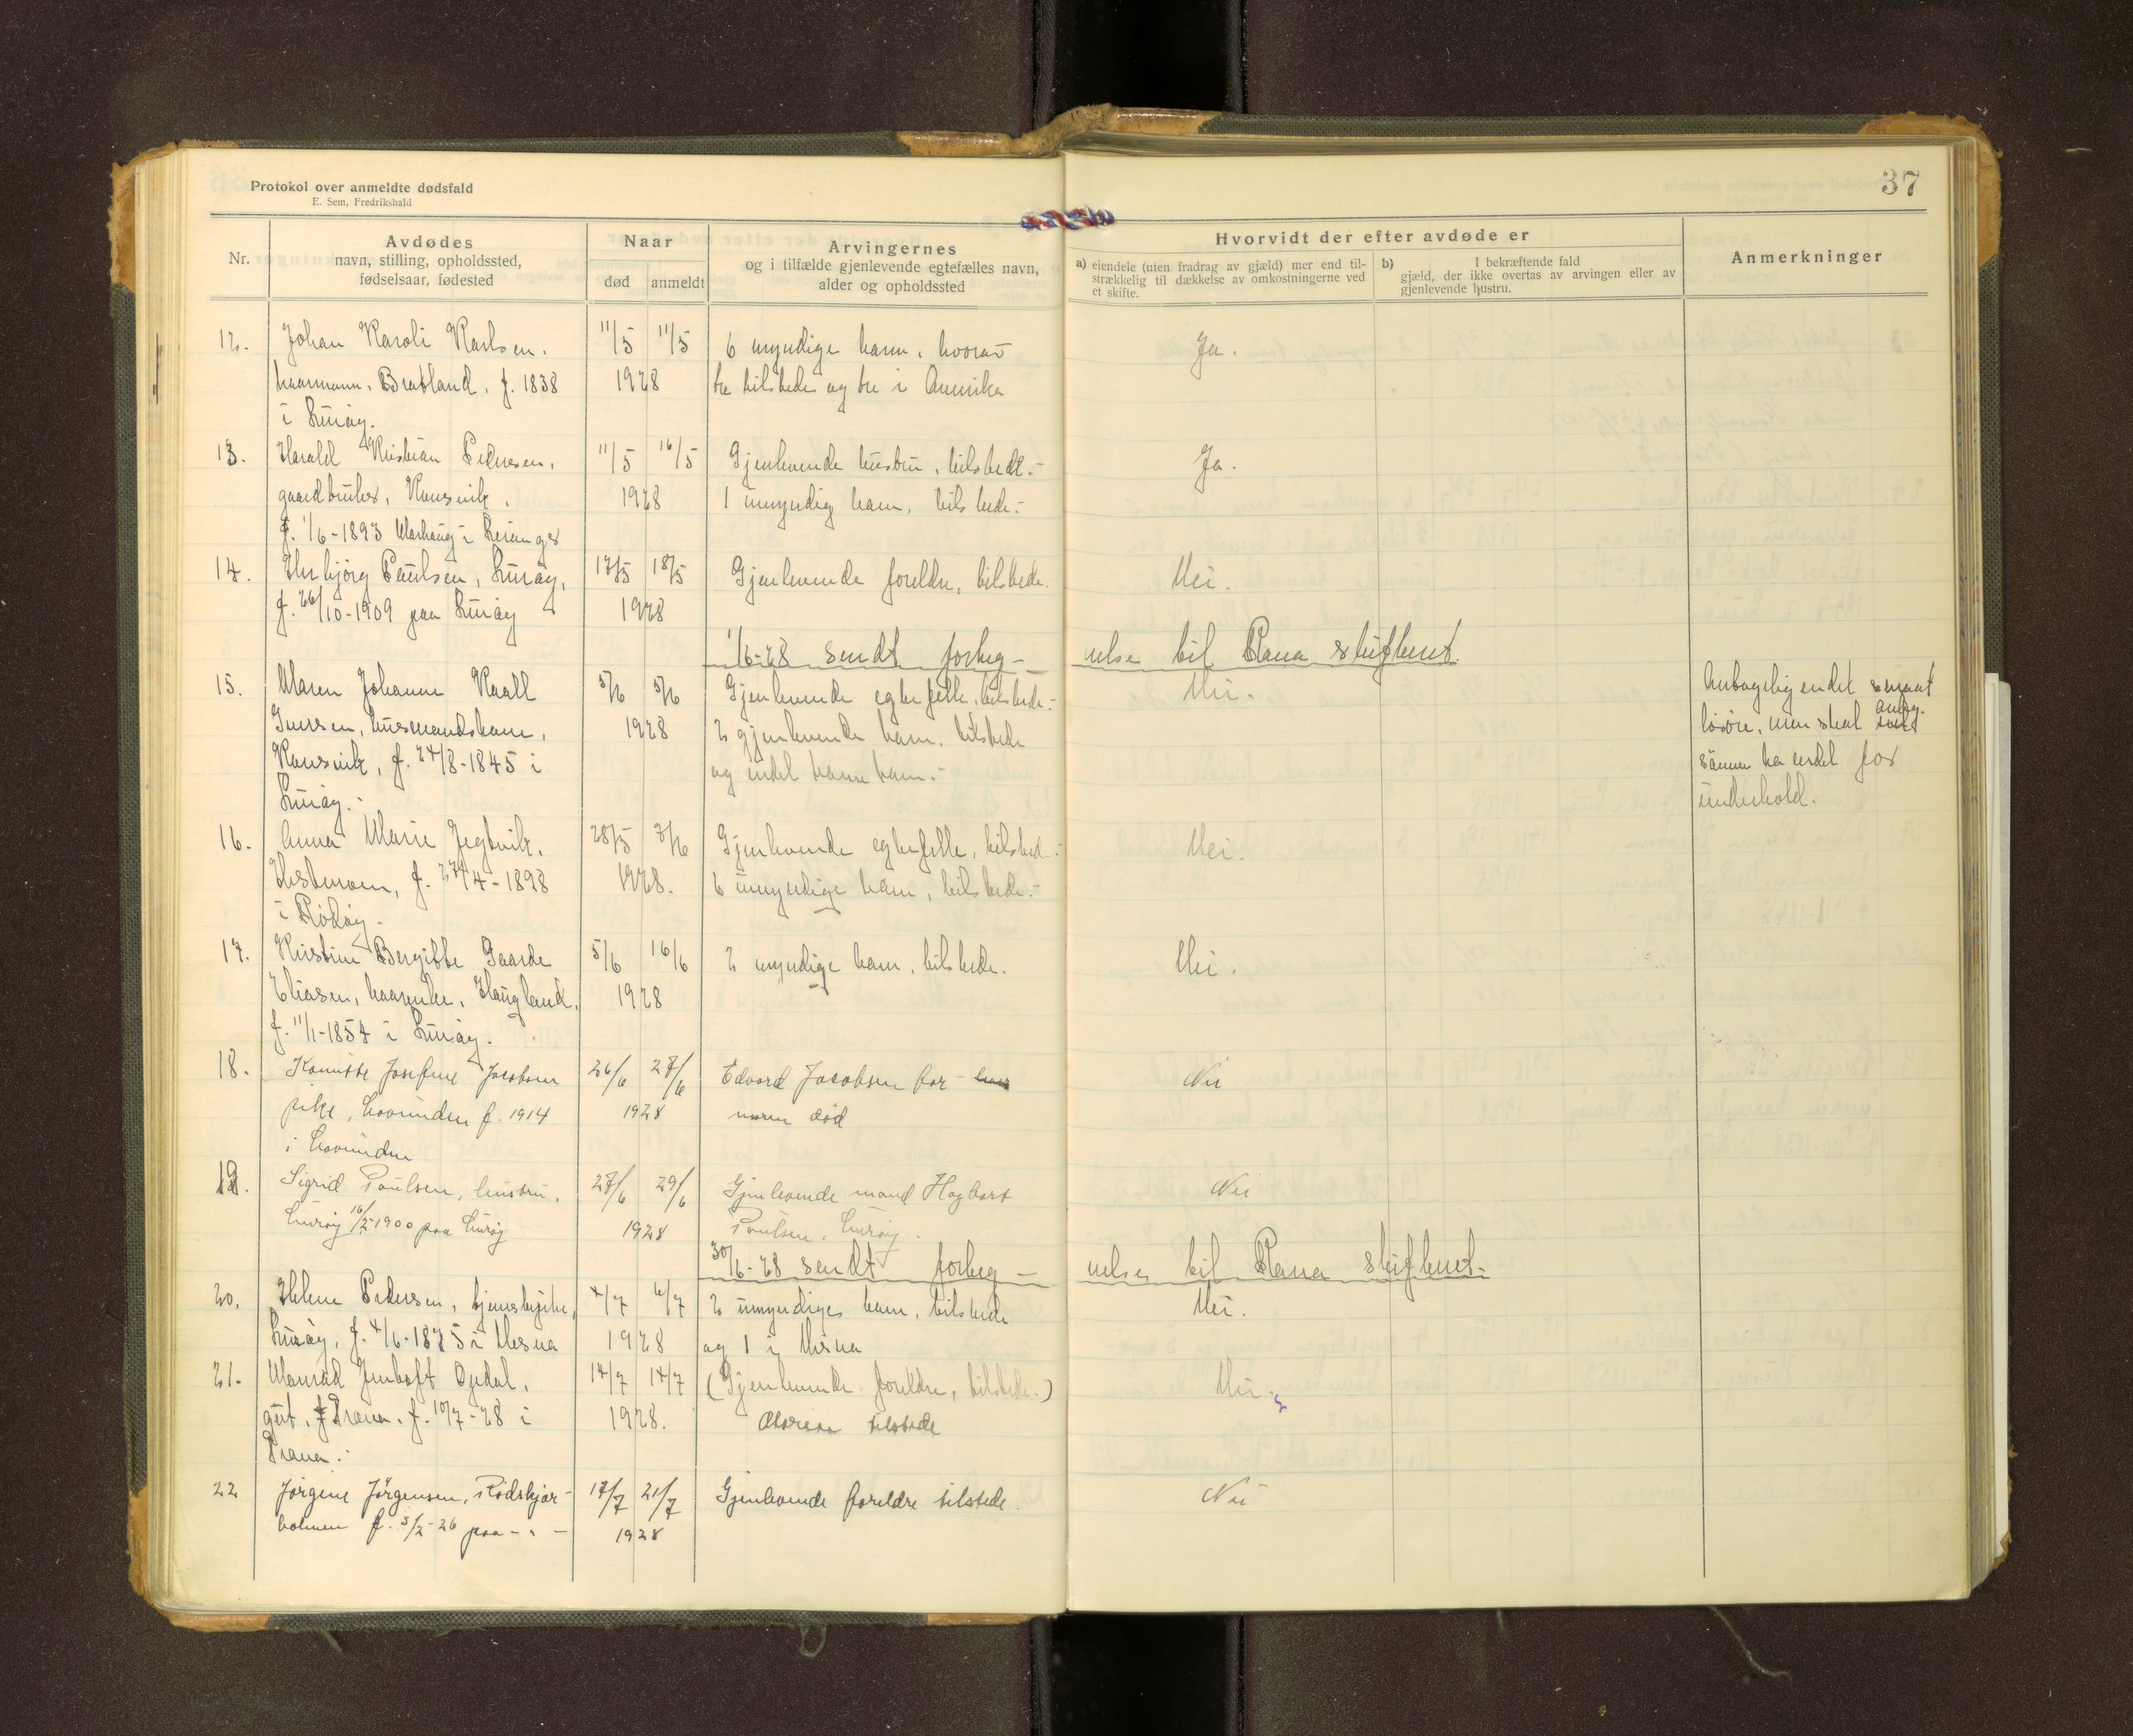 Protokol over anmeldte dødsfald
E. Sem, Fredrikshald
37
Nr.
Avdødes
navn, stilling, opholdssted,
fødselsaar, fødested
Naar
død
anmeldt
Arvingernes
og i tilfælde gjenlevende egtefælles navn,
alder og opholdssted
Hvorvidt der efter avdøde er
a) eiendele (uten fradrag av gjæld) mer end til-
strækkelig til dækkelse av omkostningerne ved
et skifte.
b) I bekræftende fald
gjæld, der ikke overtas av arvingen eller av
gjenlevende hustru.
Anmerkninger
12. Johan Karoli Karlsen, 11/5 11/5 6 myndige barn, hvorav Ja.
kaarmann, Bratland, f. 1838 1928 tre tilstede og tre i Amerika
i Lurøy.
13. Harald Kristian Pedersen, 11/5 16/5 Gjenlevende hustru, tilstede.- Ja.
gaardbruker, Konsvik, 1928 1 umyndig barn, tilstede.-
f. 1/6-1893 i
14. Herbjørg Paulsen, Lurøy, 17/5 18/5 Gjenlevende foreldre, tilstede. Nei.
f. 26/10-1909 paa Lurøy 1928
1/6-28 sendt forteg-nelse til Rana skifteret.
15. Maren Johanna Kaall 5/6 5/6 Gjenlevende egtefelle, tilstede.- Nei. Antagelig endel smaat
Iversen, husmandskone, 1928 2 gjenlevende barn, tilstede løsøre, men skal andg.
Konsvik, f. 24/8-1845 i og endel barnebarn.- sønnen ha endel for
Lurøy.- underhold.
16. Anna Marie Jegtvik, 28/5 7/6 Gjenlevende egtefelle, tilstede.- Nei.
Hestmoen, f. 27/4-1898 1928. 6 umyndige barn, tilstede.-
i Rødøy.
17. Kristine Bergitte Gaarde 5/6 16/6 2 myndige barn, tilstede. Nei.
Eliasen, kaarenke, Haugland, 1928
f. 11/1-1854 i Lurøy.
18. Josefine Jacobsen 26/6 27/6 Edvard Jacobsen far - Nei
pike, Lovunden f. 1914 1928 moren død
i Lovunden
19. Sigrid Paulsen, hustru, 27/6 29/6 Gjenlevende mand Hagbart Nei
Lurøy 16/2-1900 paa Lurøy 1928 Paulsen, Lurøy.
30/6-28 sendt forteg-nelse til Rana skifteret.
20. Helene Pedersen, tjenestepike, 4/7 6/7 2 umyndige barn, tilstede Nei.
Lurøy, f. 4/6-1875 i Nesna 1928 og 1 i Nesna
21. Konrad Jentoft Opdal, 14/7 14/7 (Gjenlevende foreldre, tilstede.) Nei.
gut, Træna, f. 10/7-28 i 1928. Moren tilstede
Træna.-
22 Jørgine Jørgensen, Rødskjær- 17/7 21/7 Gjenlevende foreldre tilstede. Nei
holmen f. 3/2-26 paa -"- 1928